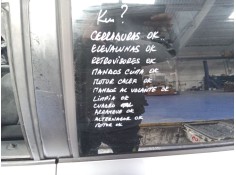 Km?
CERRADURAS OK
ELEVALUNAS OK
RETROVISORES OK
MANDOS CLIMA OK
MOTOR CALEF OK
MANDOS AL VOLANTE OK
LIMPIA OK
CUADRO OK
ARRANQUE OK
ALTERNADOR OK
MOTOR OK